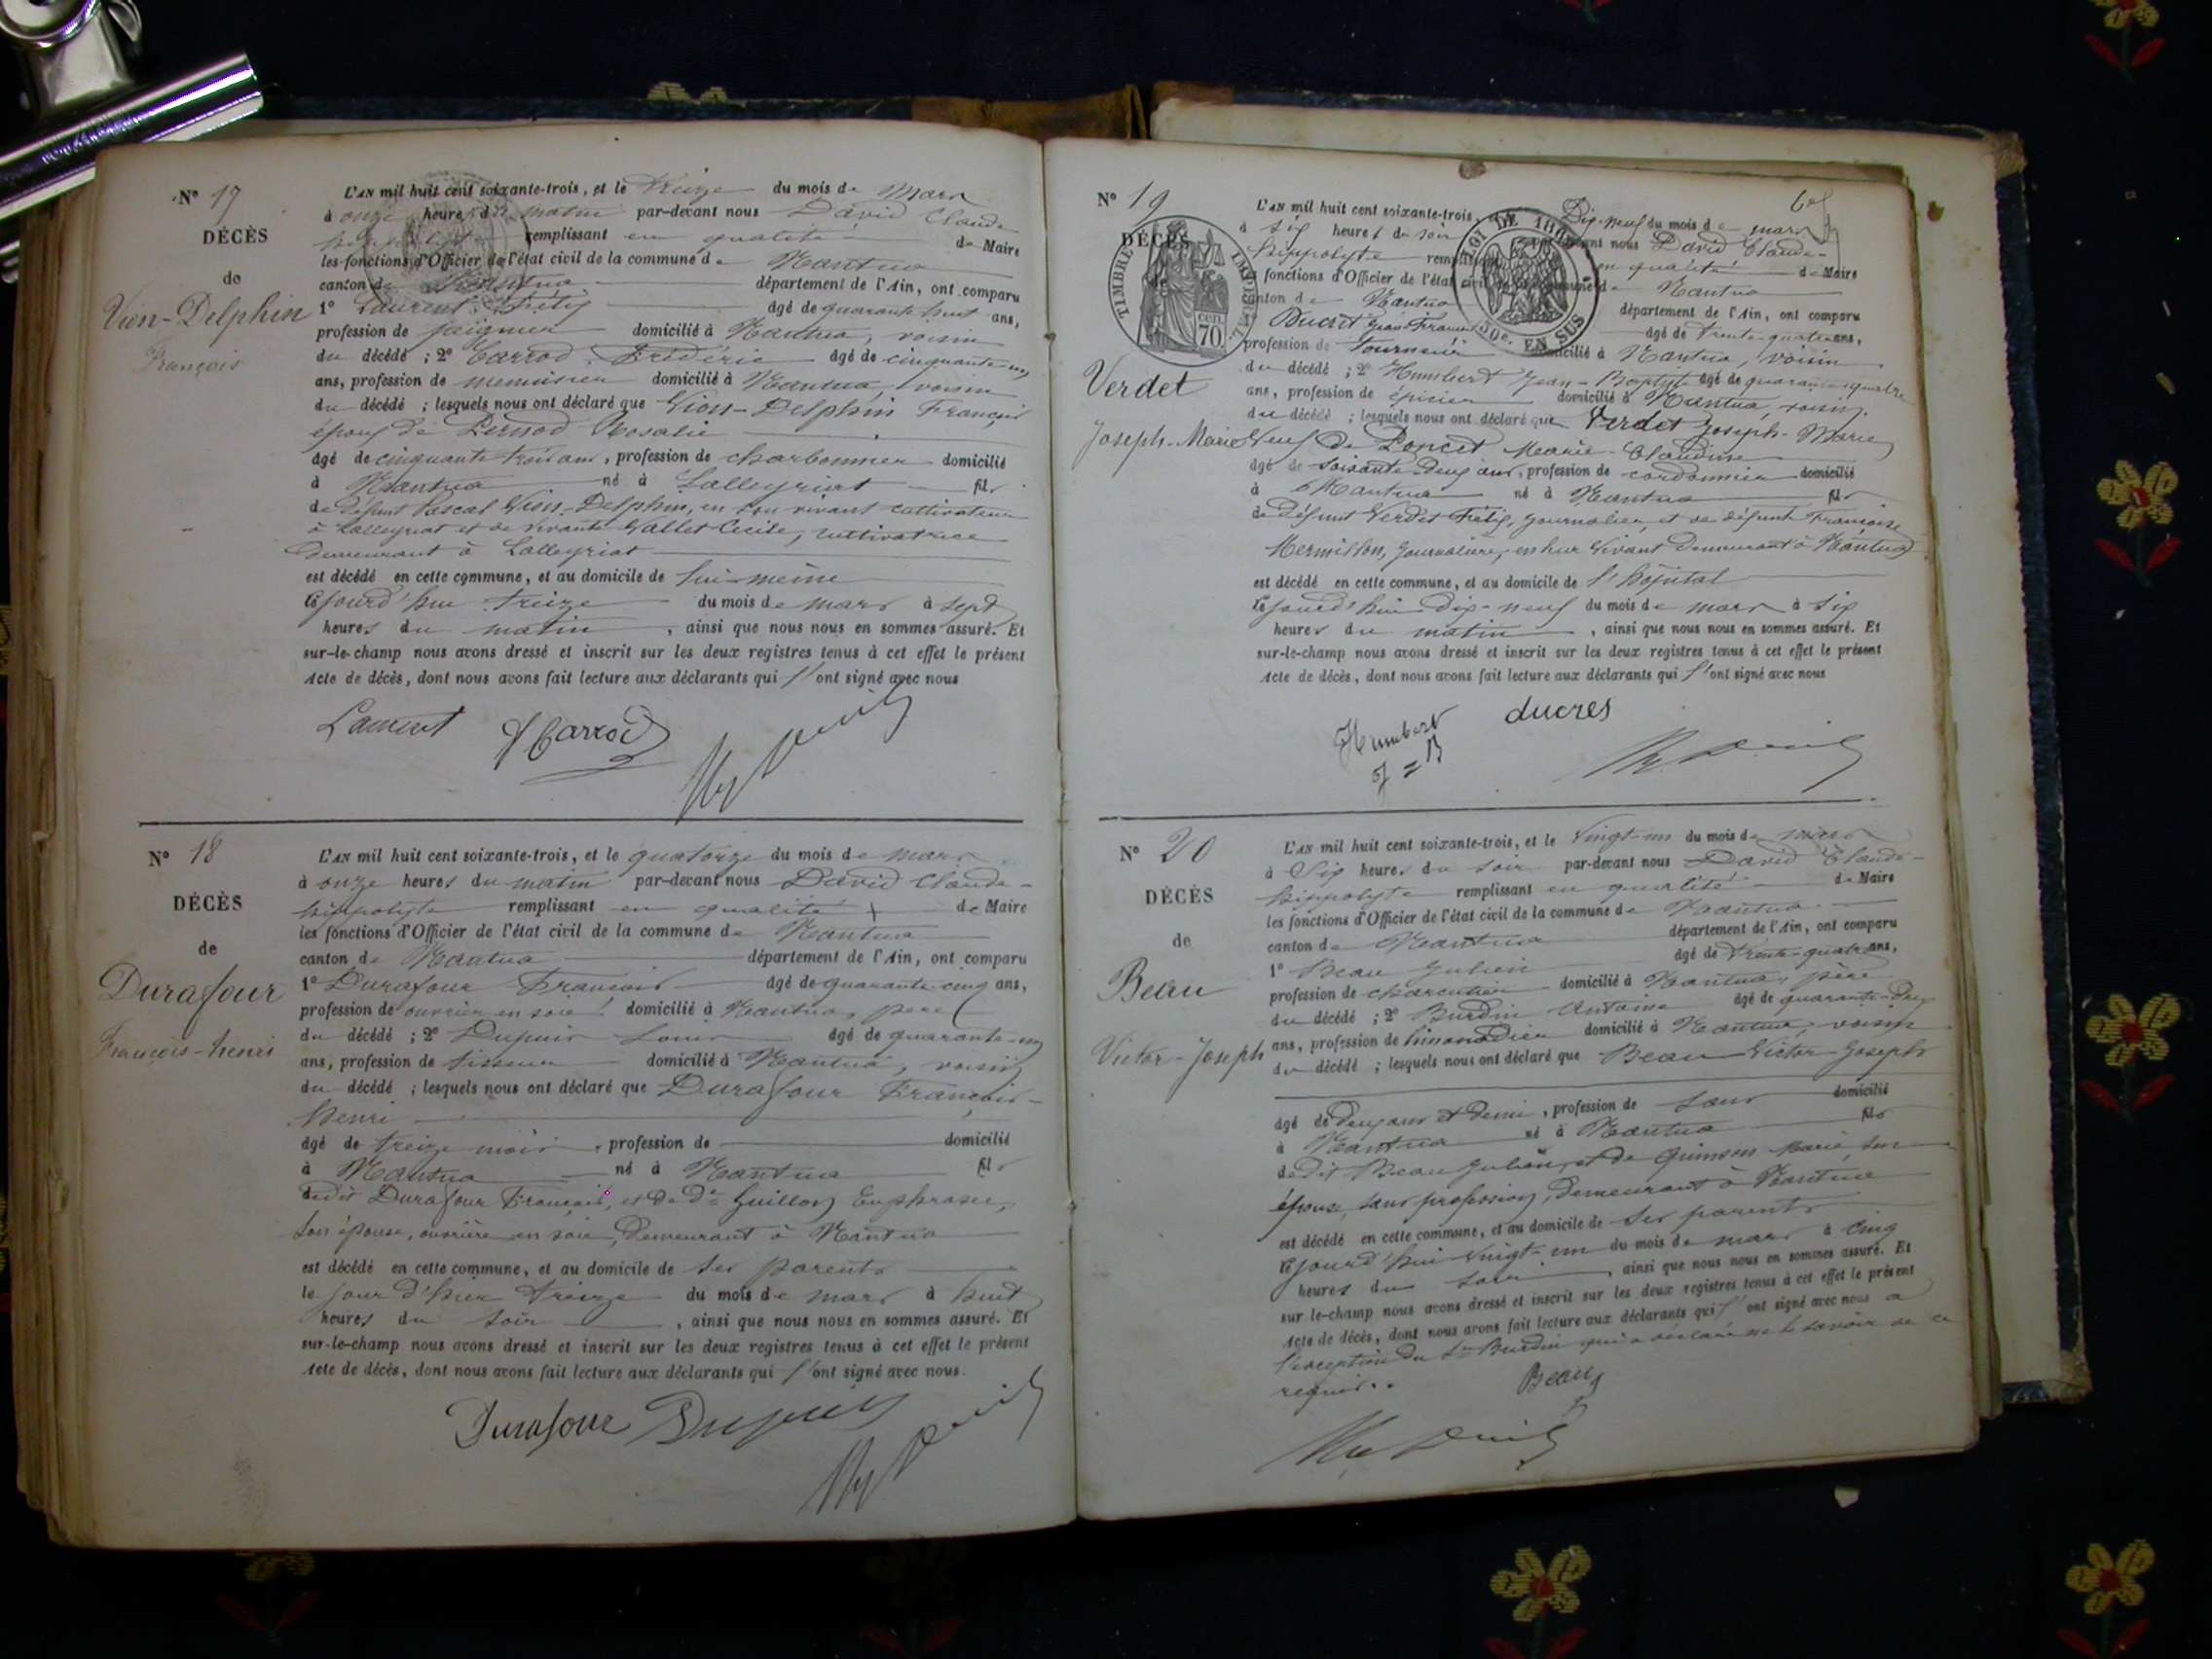 N° 17
DÉCÈS
de
Vion-Delphin
François
L'AN mil huit cent soixante-trois, et le Treize du mois de Mars
à onze heures du matin par-devant nous David Claude
hippolyte remplissant en qualité de Maire
les fonctions d'Officier de l'état civil de la commune de Nantua
canton de Nantua département de l'Ain, ont comparu
1° Laurent Félix âgé de quarante huit ans,
profession de peigneur domicilié à Nantua, voisin
du décédé ; 2° Carrod Frédéric âgé de cinquante-un
ans, profession de menuisier domicilié à Nantua, voisin
du décédé ; lesquels nous ont déclaré que Vion-Delphin François
époux de Pernod Rosalie
âgé de cinquante trois ans, profession de charbonnier domicilié
à Nantua né à Lalleyriat fils
de défunt Pascal Vion-Delphin, en son vivant cultivateur
à Lalleyriat et de vivante Gallet Cécile, cultivatrice
demeurant à Lalleyriat
est décédé en cette commune, et au domicile de lui-même
cejourd'hui treize du mois de mars à sept
heures du matin, ainsi que nous nous en sommes assuré. Et
sur-le-champ nous avons dressé et inscrit sur les deux registres tenus à cet effet le présent
Acte de décès, dont nous avons fait lecture aux déclarants qui l'ont signé avec nous
Laurent f Carrod
N° 18
DÉCÈS
de
Durafour
François-henri
L'AN mil huit cent soixante-trois, et le quatorze du mois de mars
à onze heures du matin par-devant nous David Claude-
hippolyte remplissant en qualité de Maire
les fonctions d'Officier de l'état civil de la commune de Nantua
canton de Nantua département de l'Ain, ont comparu
1° Durafour François âgé de quarante-cinq ans,
profession de ouvrier en soie domicilié à Nantua, père
du décédé ; 2° Dupuis Louis âgé de quarante-un
ans, profession de tisseur domicilié à Nantua, voisin
du décédé ; lesquels nous ont déclaré que Durafour François-
henri
âgé de treize mois, profession de domicilié
à Nantua né à Nantua fils
dudit Durafour François, et de De Guillon Euphrasie,
son épouse, ouvrière en soie, demeurant à Nantua
est décédé en cette commune, et au domicile de ses parents
le jour d'hier treize du mois de mars à huit
heures du soir, ainsi que nous nous en sommes assuré. Et
sur-le-champ nous avons dressé et inscrit sur les deux registres tenus à cet effet le présent
Acte de décès, dont nous avons fait lecture aux déclarants qui l'ont signé avec nous.
Durafour Dupuis
N° 19
DÉCÈS
de
TIMBRE IMPÉRIAL
70 cen
LOI DE
50c. EN SUS
Verdet
Joseph-Marie
L'AN mil huit cent soixante-trois, Dix-neuf du mois de mars
à six heures du soir nous David Claude-
hippolyte en qualité de Maire
fonctions d'Officier de l'état civil Nantua
canton de Nantua département de l'Ain, ont comparu
Ducret Jean-François âgé de trente-quatre ans,
profession de tourneur domicilié à Nantua, voisin
du décédé ; 2° Humbert Jean-Baptiste âgé de quarante-quatre
ans, profession de épicier domicilié à Nantua, voisin.
du décédé ; lesquels nous ont déclaré que Verdet Joseph-Marie
Veuf de Poncet Marie-Claudine
âgé de soixante-deux ans, profession de cordonnier domicilié
à Nantua né à Nantua fils
de défunt Verdet Félix, journalier, et de défunte Françoise
Mermillon, journalière, en leur vivant demeurant à Nantua
est décédé en cette commune, et au domicile de l'hôpital
cejourd'hui dix-neuf du mois de mars à six
heures du matin, ainsi que nous nous en sommes assuré. Et
sur-le-champ nous avons dressé et inscrit sur les deux registres tenus à cet effet le présent
Acte de décès, dont nous avons fait lecture aux déclarants qui l'ont signé avec nous
Humbert ducres
J=B
N° 20
DÉCÈS
de
Beau
Victor-Joseph
L'AN mil huit cent soixante-trois, et le vingt-un du mois de mars
à Six heures du soir par-devant nous David Claude-
hippolyte remplissant en qualité de Maire
les fonctions d'Officier de l'état civil de la commune de Nantua
canton de Nantua département de l'Ain, ont comparu
1° Beau Julien âgé de trente-quatre ans,
profession de charcutier domicilié à Nantua, père
du décédé ; 2° Burdin Antoine âgé de quarante-deux
ans, profession de limonadier domicilié à Nantua, voisin
du décédé ; lesquels nous ont déclaré que Beau Victor-Joseph
âgé de deux ans et demi, profession de sans domicilié
à Nantua né à Nantua fils
dudit Beau Julien, et de Guinson Marie, son
épouse, sans profession, demeurant à Nantua
est décédé en cette commune, et au domicile de ses parents
cejourd'hui vingt-un du mois de mars à cinq
heures du soir, ainsi que nous nous en sommes assuré. Et
sur le-champ nous avons dressé et inscrit sur les deux registres tenus à cet effet le présent
Acte de décès, dont nous avons fait lecture aux déclarants qui l'ont signé avec nous a
l'exception du Sr Burdin qui a déclaré ne le savoir de ce
requis.
Beau